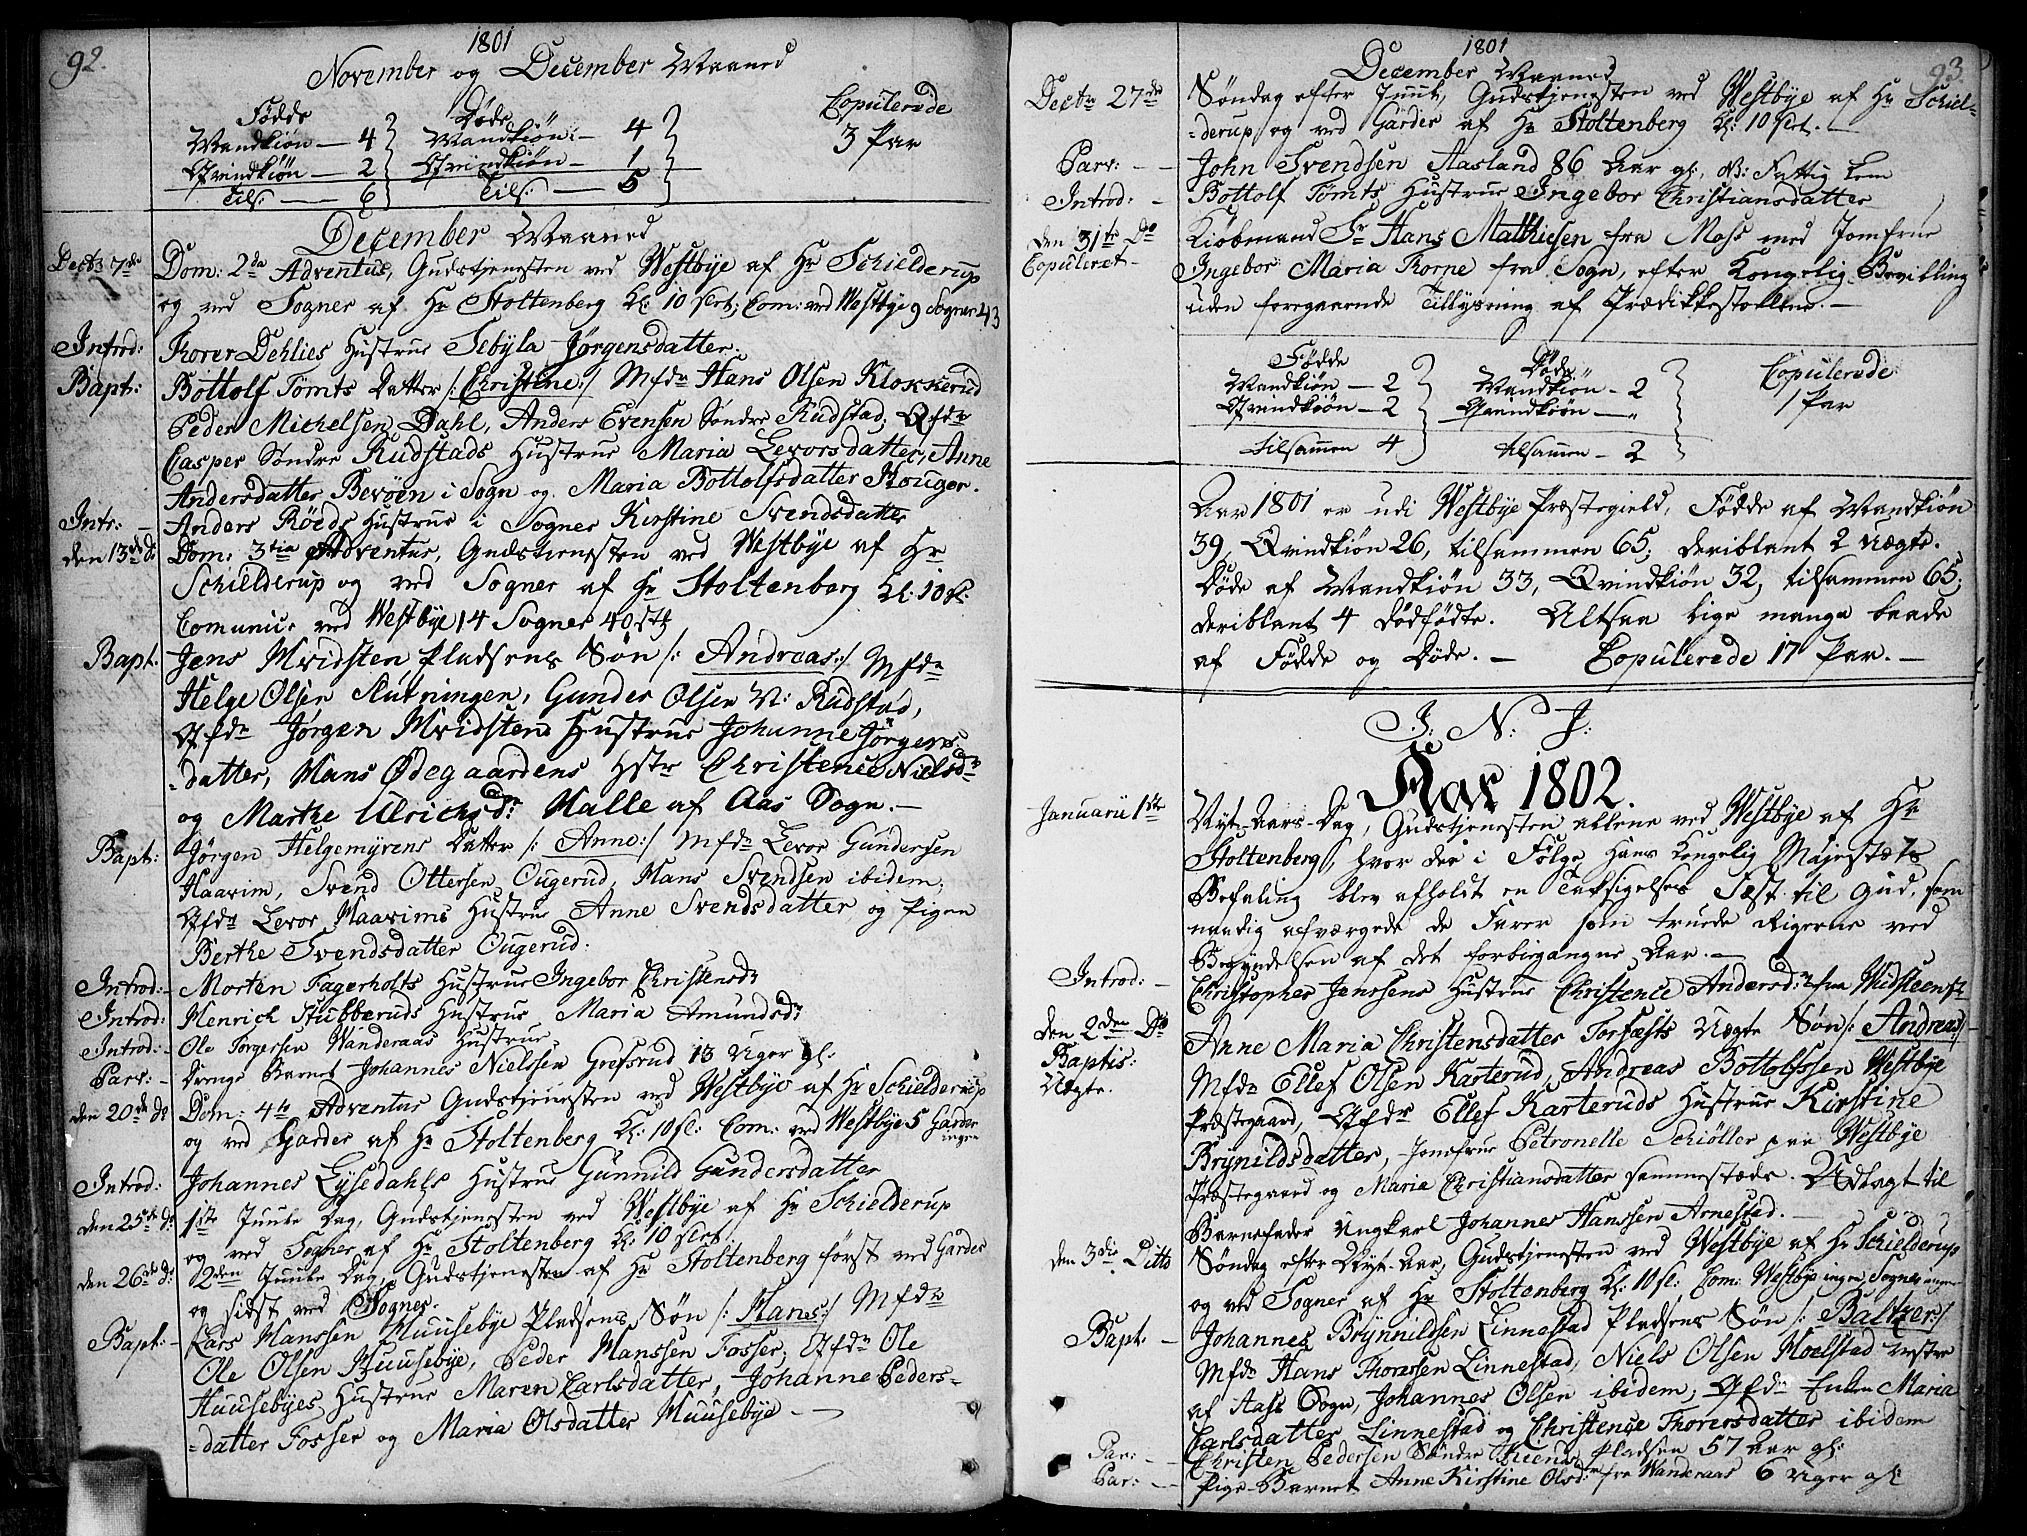 92.
1801
November og December Maaned
Fødde
Døde
Copulerede
Mandkiøn — 4
Mandkiøn — 4
3 Par
Qvindkiøn — 2
Qvindkiøn — 1
Tils: — 6
Tils: — 5
December Maaned
Decbr 7de
Dom: 2da Adventus, Gudstjenesten ved Westbye af Hr Schielderup
og ved Sogner af Hr Stoltenberg Kl: 10 slet; Com: ved Westbye 9 Sogner 43
Introd:
Thorer Dehlies Hustrue Sebyla Jørgensdatter.
Bapt:
Bottolf Tomts Datter /: Christine :/ Mfdr Hans Olsen Klokkerud
Peder Michelsen Dahl, Anders Evensen Søndre Rudstad; Qfdr
Casper Søndre Rudstads Hustrue Maria Levorsdatter, Anne
Andersdatter Bevøen i Sogn og Maria Bottolfsdatter Kouger.
Intr: —
Anders Röeds Hustrue i Sogner Kirstine Svendsdatter
den 13de do
Dom: 3tia Adventus, Gudstienesten ved Westbye af Hr
Schielderup og ved Sogner af Hr Stoltenberg Kl: 10 sl:
Comunic: ved Westbye 14 Sogner 40 stk
Bapt.
Jens Mvidsten Pladsens Søn /: Andreas :/ Mfdr
Helge Olsen Slutningen, Gunder Olsen N: Rudstad,
Qfdr Jørgen Mvidstens Hustrue Johanne Jørgens
=datter, Hans Ødegaardens Hstr Christence Nielsdr
og Marthe Ulrichsdr Halle af Aas Sogn. —
Bapt:
Jørgen Helgemyrens Datter /: Anne :/ Mfdr Levor Gundersen
Haavim, Svend Ottersen Ougerud, Hans Svendsen ibidem;
Qfdr Levor Haavims Hustrue Anne Svendsdatter og Pigen
Berthe Svendsdatter Ougerud.
Introd: —
Morten Fagerholts Hustrue Ingebor Christensdr
Introd:
Henrich Stubberuds Hustrue Maria Amundsdr
Introd: —
Ole Torgersen Wanderaas Hustrue
Parv: —
Drenge Barnet Johannes Nielssen Grefsrud 13 Uger gl:
den 20de do
Dom: 4ta Adventus Gudstjenesten ved Westbye af Hr Schielderup
og ved Garder af Hr Stoltenberg Kl: 10 sl: Com: ved Westbye 5 Garder
ingen
Introd:
Johannes Lysedahls Hustrue Gunnild Gundersdatter
den 25de do
1ste Juule Dag, Gudstjenesten ved Westbye af Hr Schielderup
og ved Sogner af Hr Stoltenberg Kl: 10 slet.
den 26de do
2den Juule Dag, Gudstjenesten af Hr Stoltenberg først ved Garder
og sidst ved Sogner.
Bapt: —
Lars Hanssen Huusebye Pladsens Søn /: Hans :/ Mfdr
Ole Olsen Huusebye, Peder Hanssen Fosser; Qfdr Ole
Huusebyes Hustrue Maren Carlsdatter, Johanne Peders=
=datter Fosser og Maria Olsdatter Huusebye —
93.
1801
December Maaned
Decbr 27de
Søndag efter Juul, Gudstjenesten ved Westbye af Hr Schiel=
=derup og ved Garder af Hr Stoltenberg Kl: 10 slet. —
Parv: —
John Svendsen Aasland 86 Aar gl: Fattig Lem
Introd: —
Bottolf Tomts Hustrue Ingebor Christiansdatter
den 31te Do
Kiøbmand Sr Hans Mathiesen fra Moss med Jomfrue
Copuleret —
Ingebor Maria Thorne fra Sogn, efter Kongelig Bevilling
uden foregaaende Tillysning af Prædikkestollene. —
Fødde
Døde
Copulerede
Mandkiøn — 2
Mandkiøn — 2
1 Par
Qvindkiøn — 2
Qvindkiøn — "
tilsammen 4
tilsamen — 2
Aar 1801 er udi Westbye Præstegield, Fødde af Mandkiøn
39, Qvindkiøn 26, tilsammen 65; deriblant 2 Uægte.
Døde af Mandkiøn 33, Qvindkiøn 32, tilsammen 65;
deriblant 4 dødfødte. Altsaa lige mange baade
af Fødde og Døde. — Copulerede 17 Par. —
I: N: J:
Aar 1802.
Januarii 1ste
Nyt-Aars-Dag, Gudstjenesten allene ved Westbye af Hr
Stoltenberg, hvor der i Følge Hans Kongelig Majestæts
Befaling blev afholdt en Taksigelses Fæst til Gud, som
naadig afværgede de Farer som truede Rigerne ved
Begyndelsen af det forbigangne Aar. —
Introd: —
Christopher Jenssens Hustrue Christence Andersdr fra
den 2den Do
Anne Maria Christensdatter Torfæsts Uægte Søn /: Andreas :/
Baptis:
Mfdr Ellef Olsen Karterud, Andreas Bottolfssen Westbye
Uægte.
Præstegaard, Qfdr Ellef Karteruds Hustrue Kirstine
Brynildsdatter, Jomfrue Petronelle Schiøller paa Westbye
Præstegaard og Maria Christiansdatter sammestæds. Udlagt til
Barnefader Ungkarl Johannes Hanssen Arnestad. —
den 3die Ditto
Søndag efter Nyt-Aar, Gudstjenesten ved Westbye af Hr Schielderup
og ved Sogner af Hr Stoltenberg Kl: 10 sl; Com: Westbye ingen, Sogner ingen
Bapt: —
Johannes Brynnildsen Linnestad Pladsens Søn /: Baltzer :/
Mfdr Hans Thoresen Linnestad, Niels Olsen Holstad vestre
af Aass Sogn, Johannes Olsen ibidem; Qfdr Enken Maria
Carlsdatter Linnestad og Christence Thorersdatter ibidem
Par: —
Christen Pedersen Søndre Pladsen 57 Aar gl:
Par: —
Pige-Barnet Anne Kirstine Olsdr fra Wanderaas 6 Uger gl: